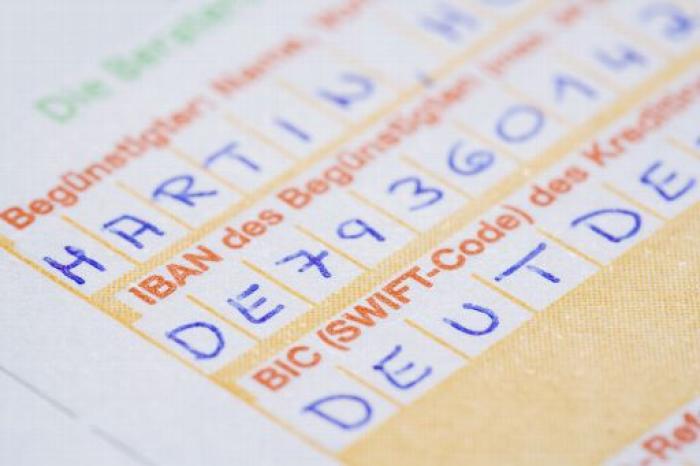 Die
Begünstigter: Name,
HARTIN, H
IBAN des Begünstigten
DE79360142
BIC (SWIFT-Code) des
DEUTDE